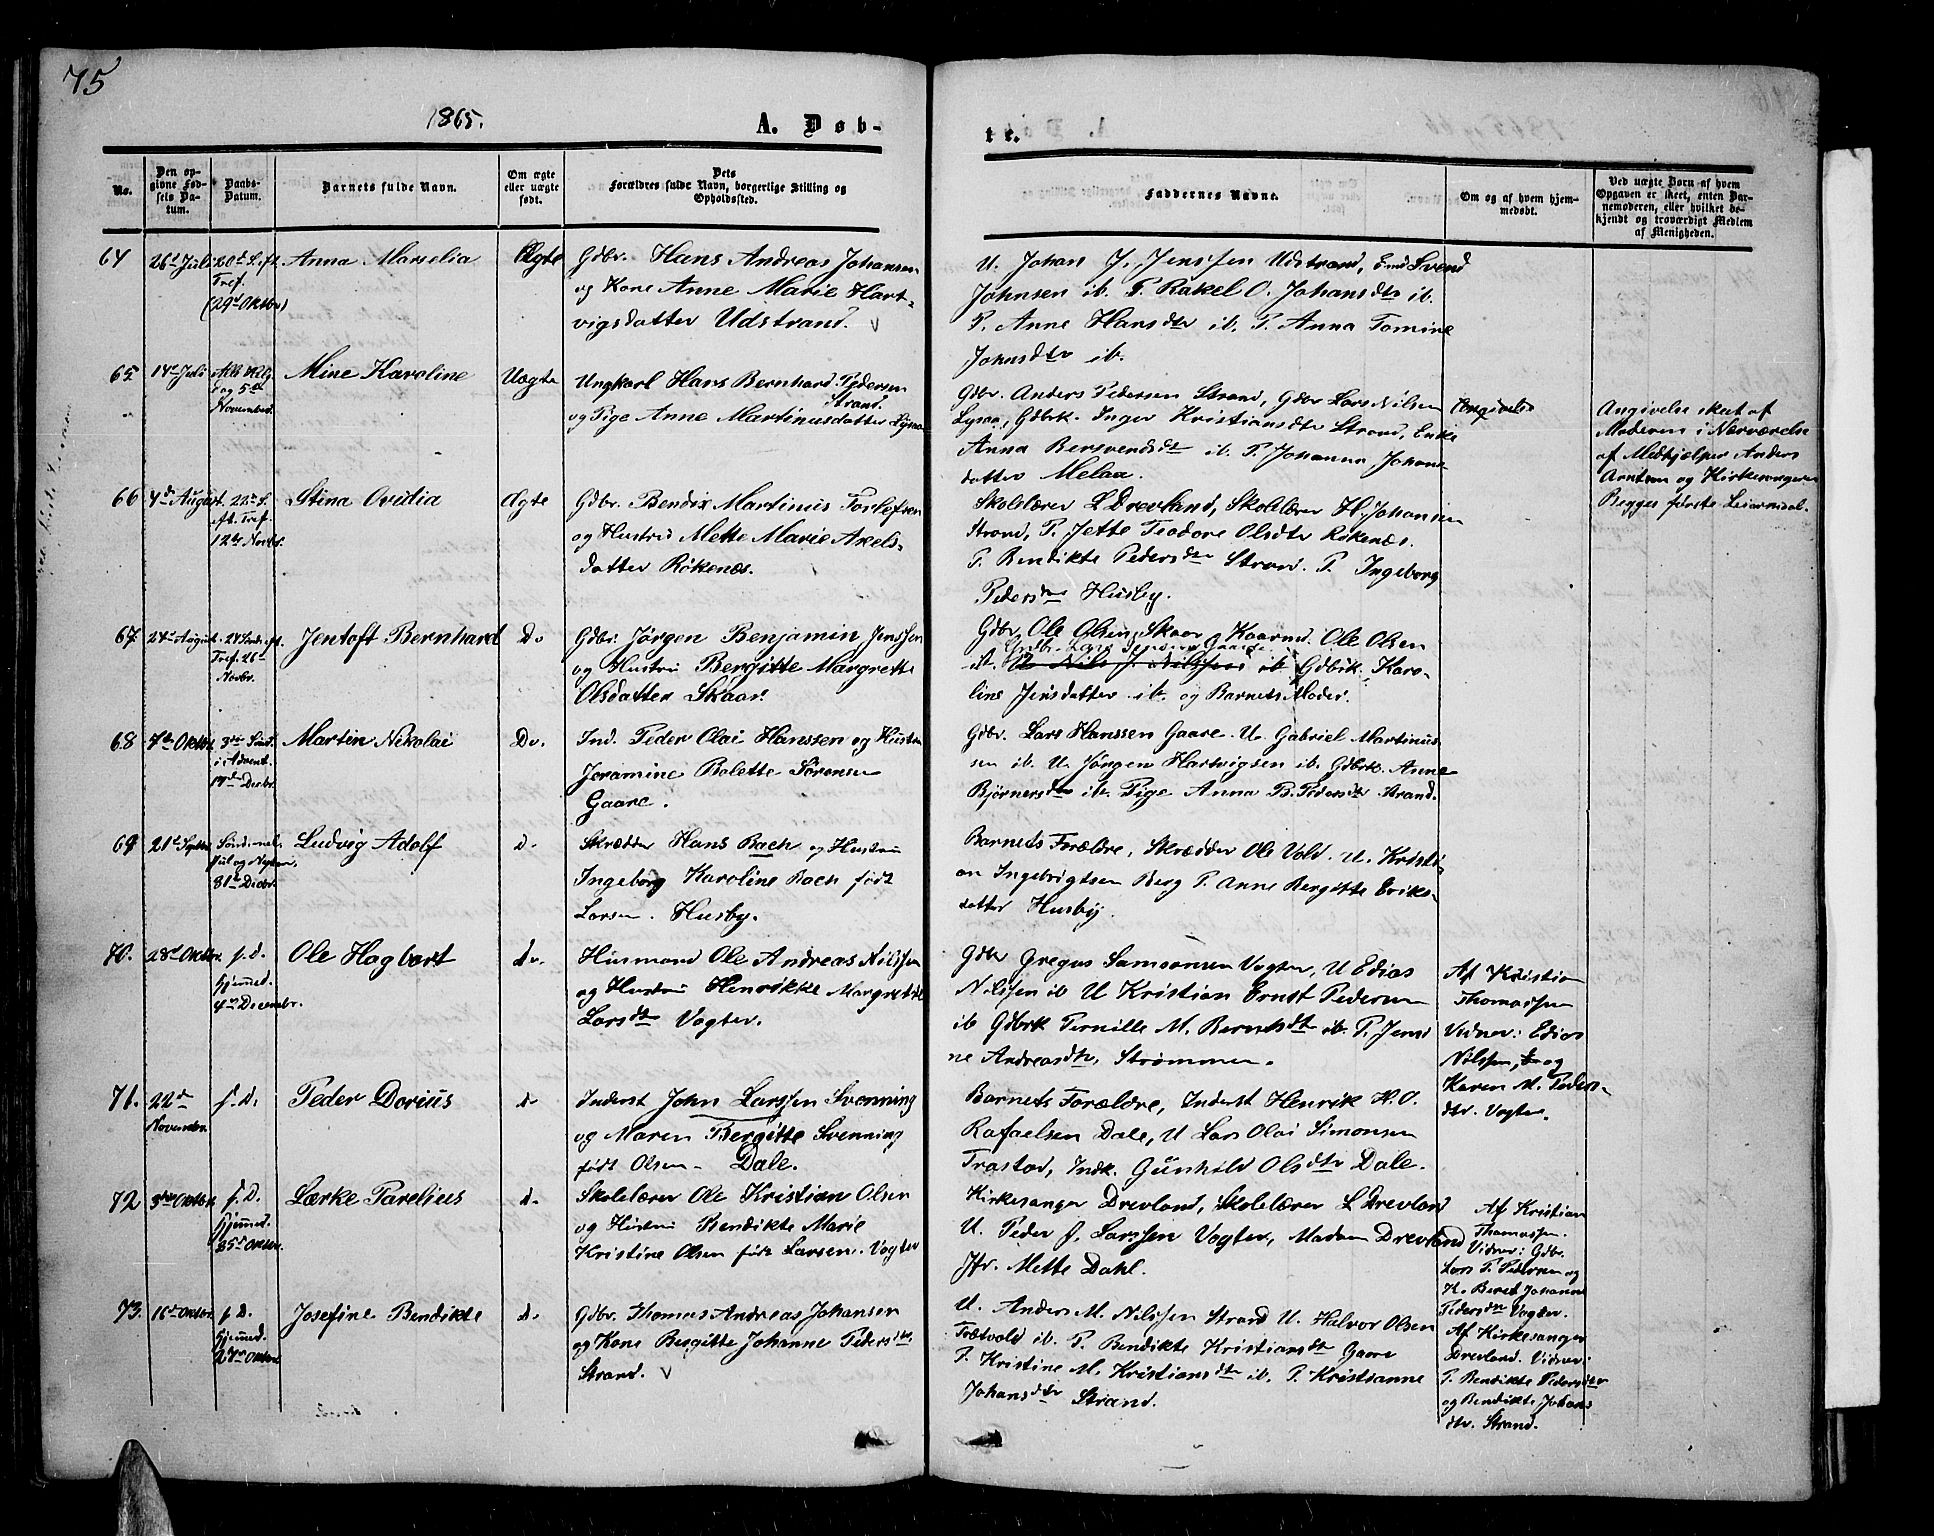 75
1865.
A. Døb-
te.
No.
Den op-
givne Fød-
sels Da-
tum.
Daabs-
Datum.
Barnets fulde Navn.
Om ægte
eller uægte
født.
Dets
Forældres fulde Navn, borgerlige Stilling og
Opholdssted.
Faddernes Navne.
Om og af hvem hjem-
medøbt.
Ved uægte Børn af hvem
Opgaven er skeet, enten Bar-
nemoderen, eller hvilket be-
kjendt og troværdigt Medlem
af Menigheden.
64
26d Juli
20d S. eft.
Tref.
(29d Oktbr)
Anna Marselia
Ægte
Gdbr. Hans Andreas Johansen
og Kone Anne Marie Hart-
vigsdatter Udstrand.
U. Johan J. Jenssen Udstrand, Svend
Johnsen ib. P. Rakel O. Johansdtr ib.
P. Anne Hansdtr ib. P. Anna Tomine
Johnsdtr ib.
65
14d Juli
Alle Helg.
dag 5te
November.
Mine Karoline
Uægte
Ungkarl Hans Bernhard Pedersen
Strand.
og Pige Anne Martinusdatter Lysaa
Gdbr. Anders Pedersen Strand, Gdbr Lars Nilsen
Lysaa, Gdbrk. Inger Kristiansdtr Strand, Enke
Anna Bersvendsdtr ib. P. Johanna Johans
datter Melaa.
Angivelse skeet af
Moderen i Nærværelse
af Medhjelper Anders
Arntsen og Kirkesanger
Begges første Leiermaal.
66
4d August
22d S.
eft. Tref.
12te Novbr.
Stina Ovidia
Ægte
Gdbr. Bendix Martinus Torlefsen
og Hustru Mette Marie Axels-
datter Røkenæs.
Skolelærer L Drevland, Skolelærer H. Johansen
Strand, P. Jette Teodore Olsdtr Røkenæs.
P. Bendikte Pedersdtr Strand. P. Ingeborg
Pedersdtr Husby.
67
24d August
24 Sønd. eft.
Tref. 26
Novbr.
Jentoft Bernhard
Do
Gdbr. Jørgen Benjamin Jenssen
og Hustru Bergitte Margrethe
Olsdatter Skaar.
Gdbr. Ole Olsen Skaar, Kaarmd. Ole Olsen
Gdbr. Lars Jenssen Gaare
ib. U Nils J. Nilssen ib. Gdbrk. Karo-
line Jensdatter ib. og Barnets Moder.
68
7de Oktbr.
3die Sønd.
i Advent.
17de Decbr.
Martin Nikolai
Do.
Ind. Peder Olai Hanssen og Hustru
Joramine Bolette Sørensen
Gaare.
Gdbr. Lars Hanssen Gaare. U. Gabriel Martinus-
sen ib. U. Jørgen Hartvigsen ib. Gdbrk. Anne
Bjørnersdtr ib. Pige Anna B. Pedersdtr Strand.
69
21d Septbr
Sønd. mel.
Jul og Nytaar.
31te Decbr.
Ludvig Adolf
d.
Skrædder Hans Bach og Hustru
Ingeborg Karoline Bach født
Larsen. Husby.
Barnets Forældre, Skrædder Ole Vold. U. Kristi-
an Ingebrigtsen Berg P. Anne Bergitte Eriks-
datter Husby.
70.
28d Oktbr.
f. D.
Hjemmed.
4de Decembr.
Ole Hagbart
do.
Husmand Ole Andreas Nilssen
og Hustru Henrikke Margrethe
Larsdtr Vogter.
Gdbr Gregus Samsonsen Vogter, U Edias
Nilssen ib U Kristian Ernst Pedersen
ib Gdbrk Pernille M. Bernhdtr ib. P. Jensi
ne Andreasdtr, Strømmen.
Af Kristian
Thomassen
Vidner: Edias
Nilssen, og
Karen M. Peders-
dtr. Vogter.
71.
22de
Novembr.
f. D.
Peder Dorius
d
Inderst John Larssen Svenning
og Maren Bergitte Svenning
født Olsen - Dale.
Barnets Forældre, Inderst Henrik H. O.
Rafaelsen Dale, U Lars Olai Simonsen
Trastad, Indk. Gunhild Olsdtr Dale.
72
3die Oktbr
f. D.
Hjemmed.
25d Oktbr.
Lærke Parelius
d.
Skolelærer Ole Kristian Olsen
og Hustru Bendikte Marie
Kristine Olsen født Larsen. Vogter
Kirkesanger Drevland, Skolelærer L Drevland
U. Peder J. Larssen Vogter, Madam Drevland
Jfr. Mette Dahl.
Af Kristian
Thomassen.
Vidner: Gdbr.
Lars P. Pedersen og
K. Beret Johanna
Pedersdtr Vogter.
73.
16d Oktbr.
f. D.
Hjemmed.
27de Oktbr
Josefine Bendikte
d.
Gdbr. Thomas Andreas Johansen
og Kone Bergitte Johanne Pedersdtr
Strand.
U. Anders M. Nilssen Strand U. Halvor Olsen
Trætvold ib. P. Bendikte Kristiansdtr Gaare
P. Kristine M. Kristiansdtr ib. P. Kristianne
Johansdtr Strand.
Af Kirkesanger
Drevland. Vidner:
P. Bendikte Pedersdtr
og Bendikte Johans
dtr. Strand.